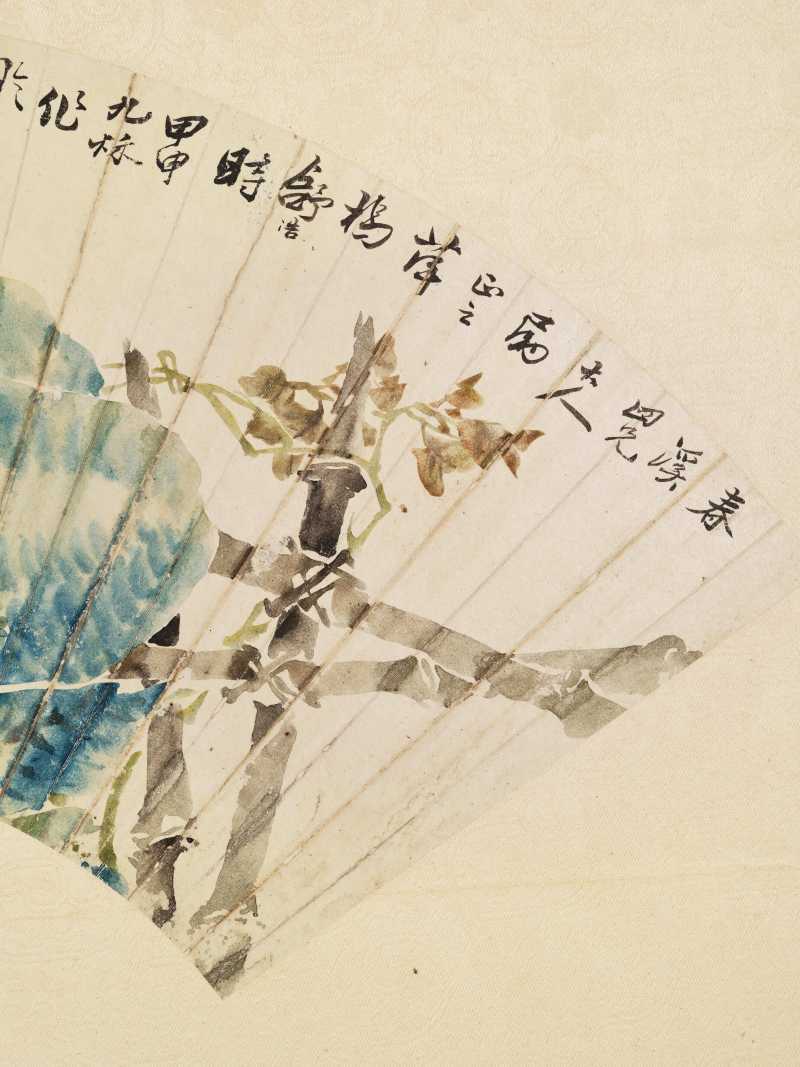 春溪四兄大人屬正之萍橋舒浩時甲申九秋作於